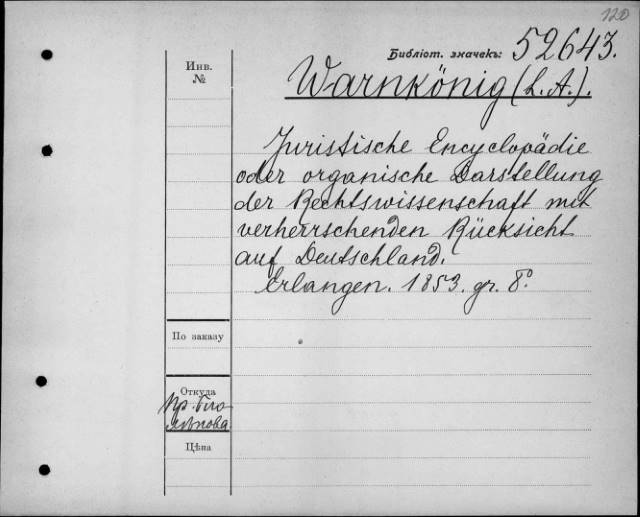 120
Библіот. значекъ: 52643.
Инв.
№
Warnkönig (L. A.).
Juristische Encyclopädie
oder organische Darstellung
der Rechtswissenschaft mit
verherrschenden Rücksicht
auf Deutschland.
Erlangen. 1853. gr. 8º
По заказу
Откуда
Пр.
Цѣна